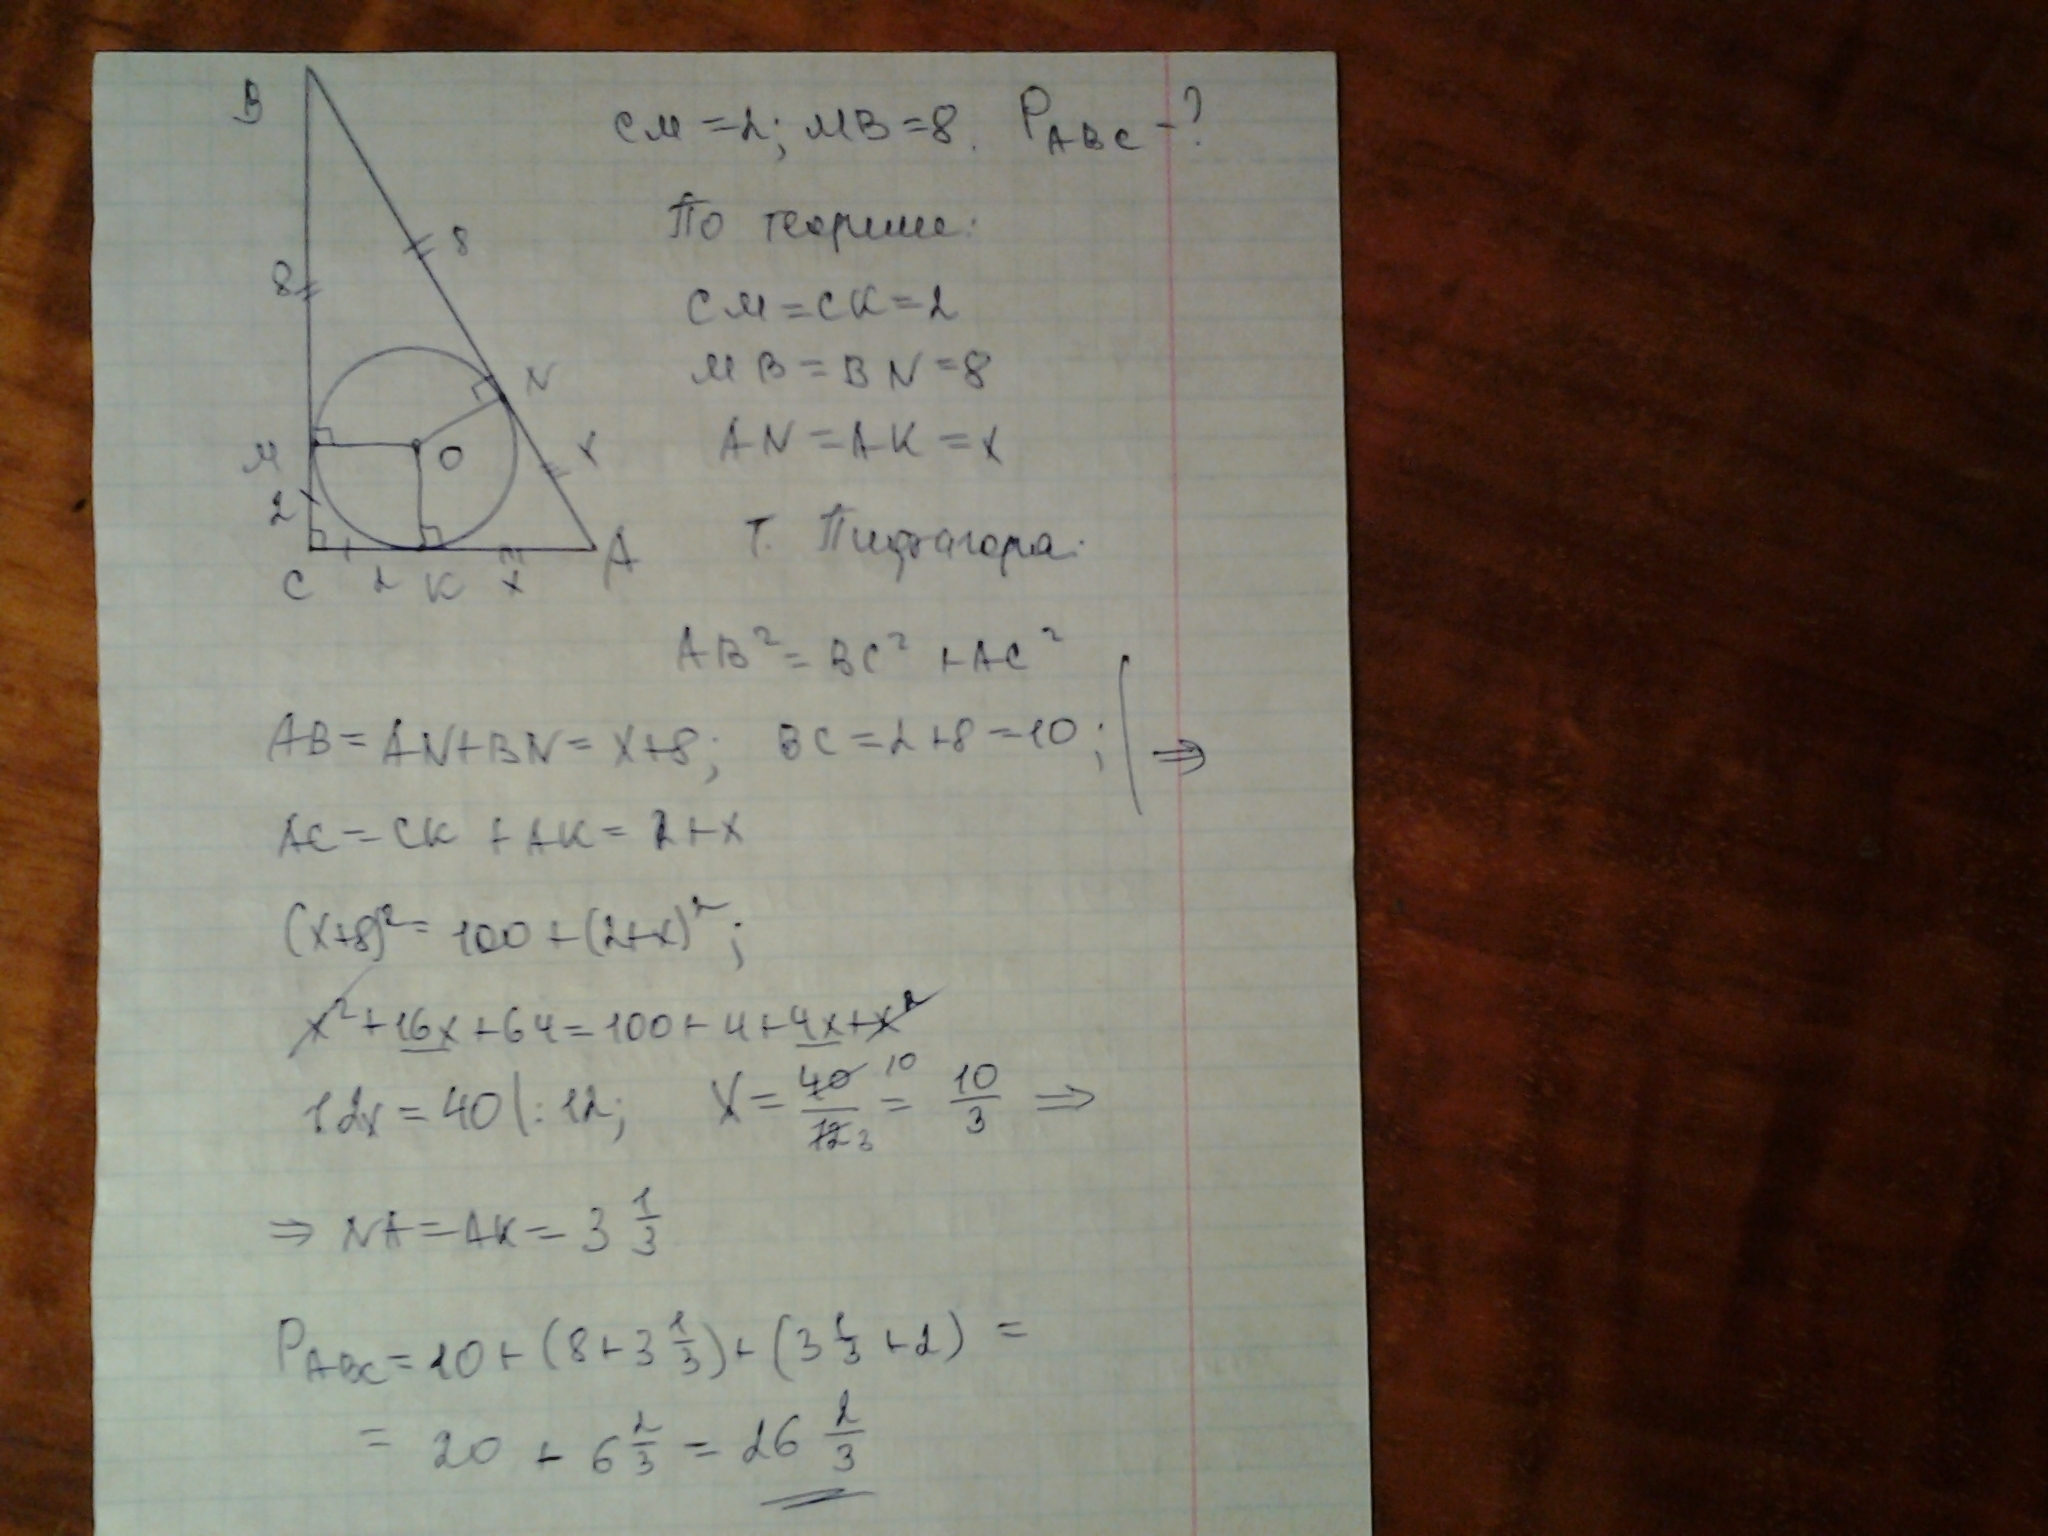 B
CM=2; MB=8. P_ABC-?
8
8
По теореме:
CM=CK=2
MB=BN=8
N
M
O
x
AN=AK=x
2
Т. Пифагора:
C 2 K x A
AB²=BC²+AC²
AB=AN+BN=x+8; BC=2+8=10; ⇒
AC=CK+AK=2+x
(x+8)²=100+(2+x)²;
x²+16x+64=100+4+4x+x²
12x=40|:12; x=40/12 10 3=10/3 ⇒
⇒ NA=AK=3 1/3
P_ABC=10+(8+3 1/3)+(3 1/3+2)=
=20+6 2/3=26 2/3